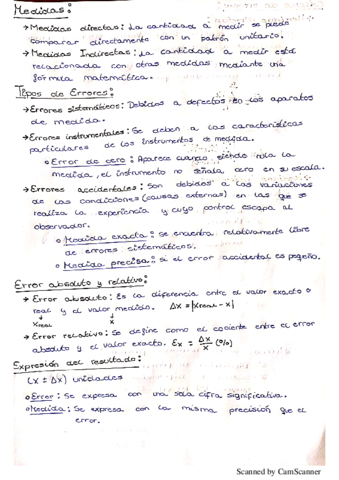 Medidas:
→Medidas directas: La cantidad a medir se puede
comparar directamente con un patrón unitario.
→Medidas Indirectas: La cantidad a medir está
relacionada con otras medidas mediante una
fórmula matemática.
Tipos de Errores:
→Errores sistemáticos: Debidos a defectos en los aparatos
de medida.
→Errores instrumentales: Se deben a las características
particulares de los instrumentos de medida.
o Error de cero: Aparece cuando, siendo nula la
medida, el instrumento no señala cero en su escala.
→Errores accidentales: Son debidos a las variaciones
de las condiciones (causas externas) en las que se
realiza la experiencia y cuyo control escapa al
observador.
o Medida exacta: Se encuentra relativamente libre
de errores sistemáticos.
o Medida precisa: si el error accidental es pequeño.
Error absoluto y relativo:
→ Error absoluto: Es la diferencia entre el valor exacto o
real y el valor medido. Δx=|xreal-x|
xreal x
→ Error relativo: Se define como el cociente entre el error
absoluto y el valor exacto. Ex = Δx/x (%)
Expresión del resultado:
(x ± Δx) unidades
o Error: Se expresa con una sola cifra significativa.
o Medida: Se expresa con la misma precisión que el
error.
Scanned by CamScanner